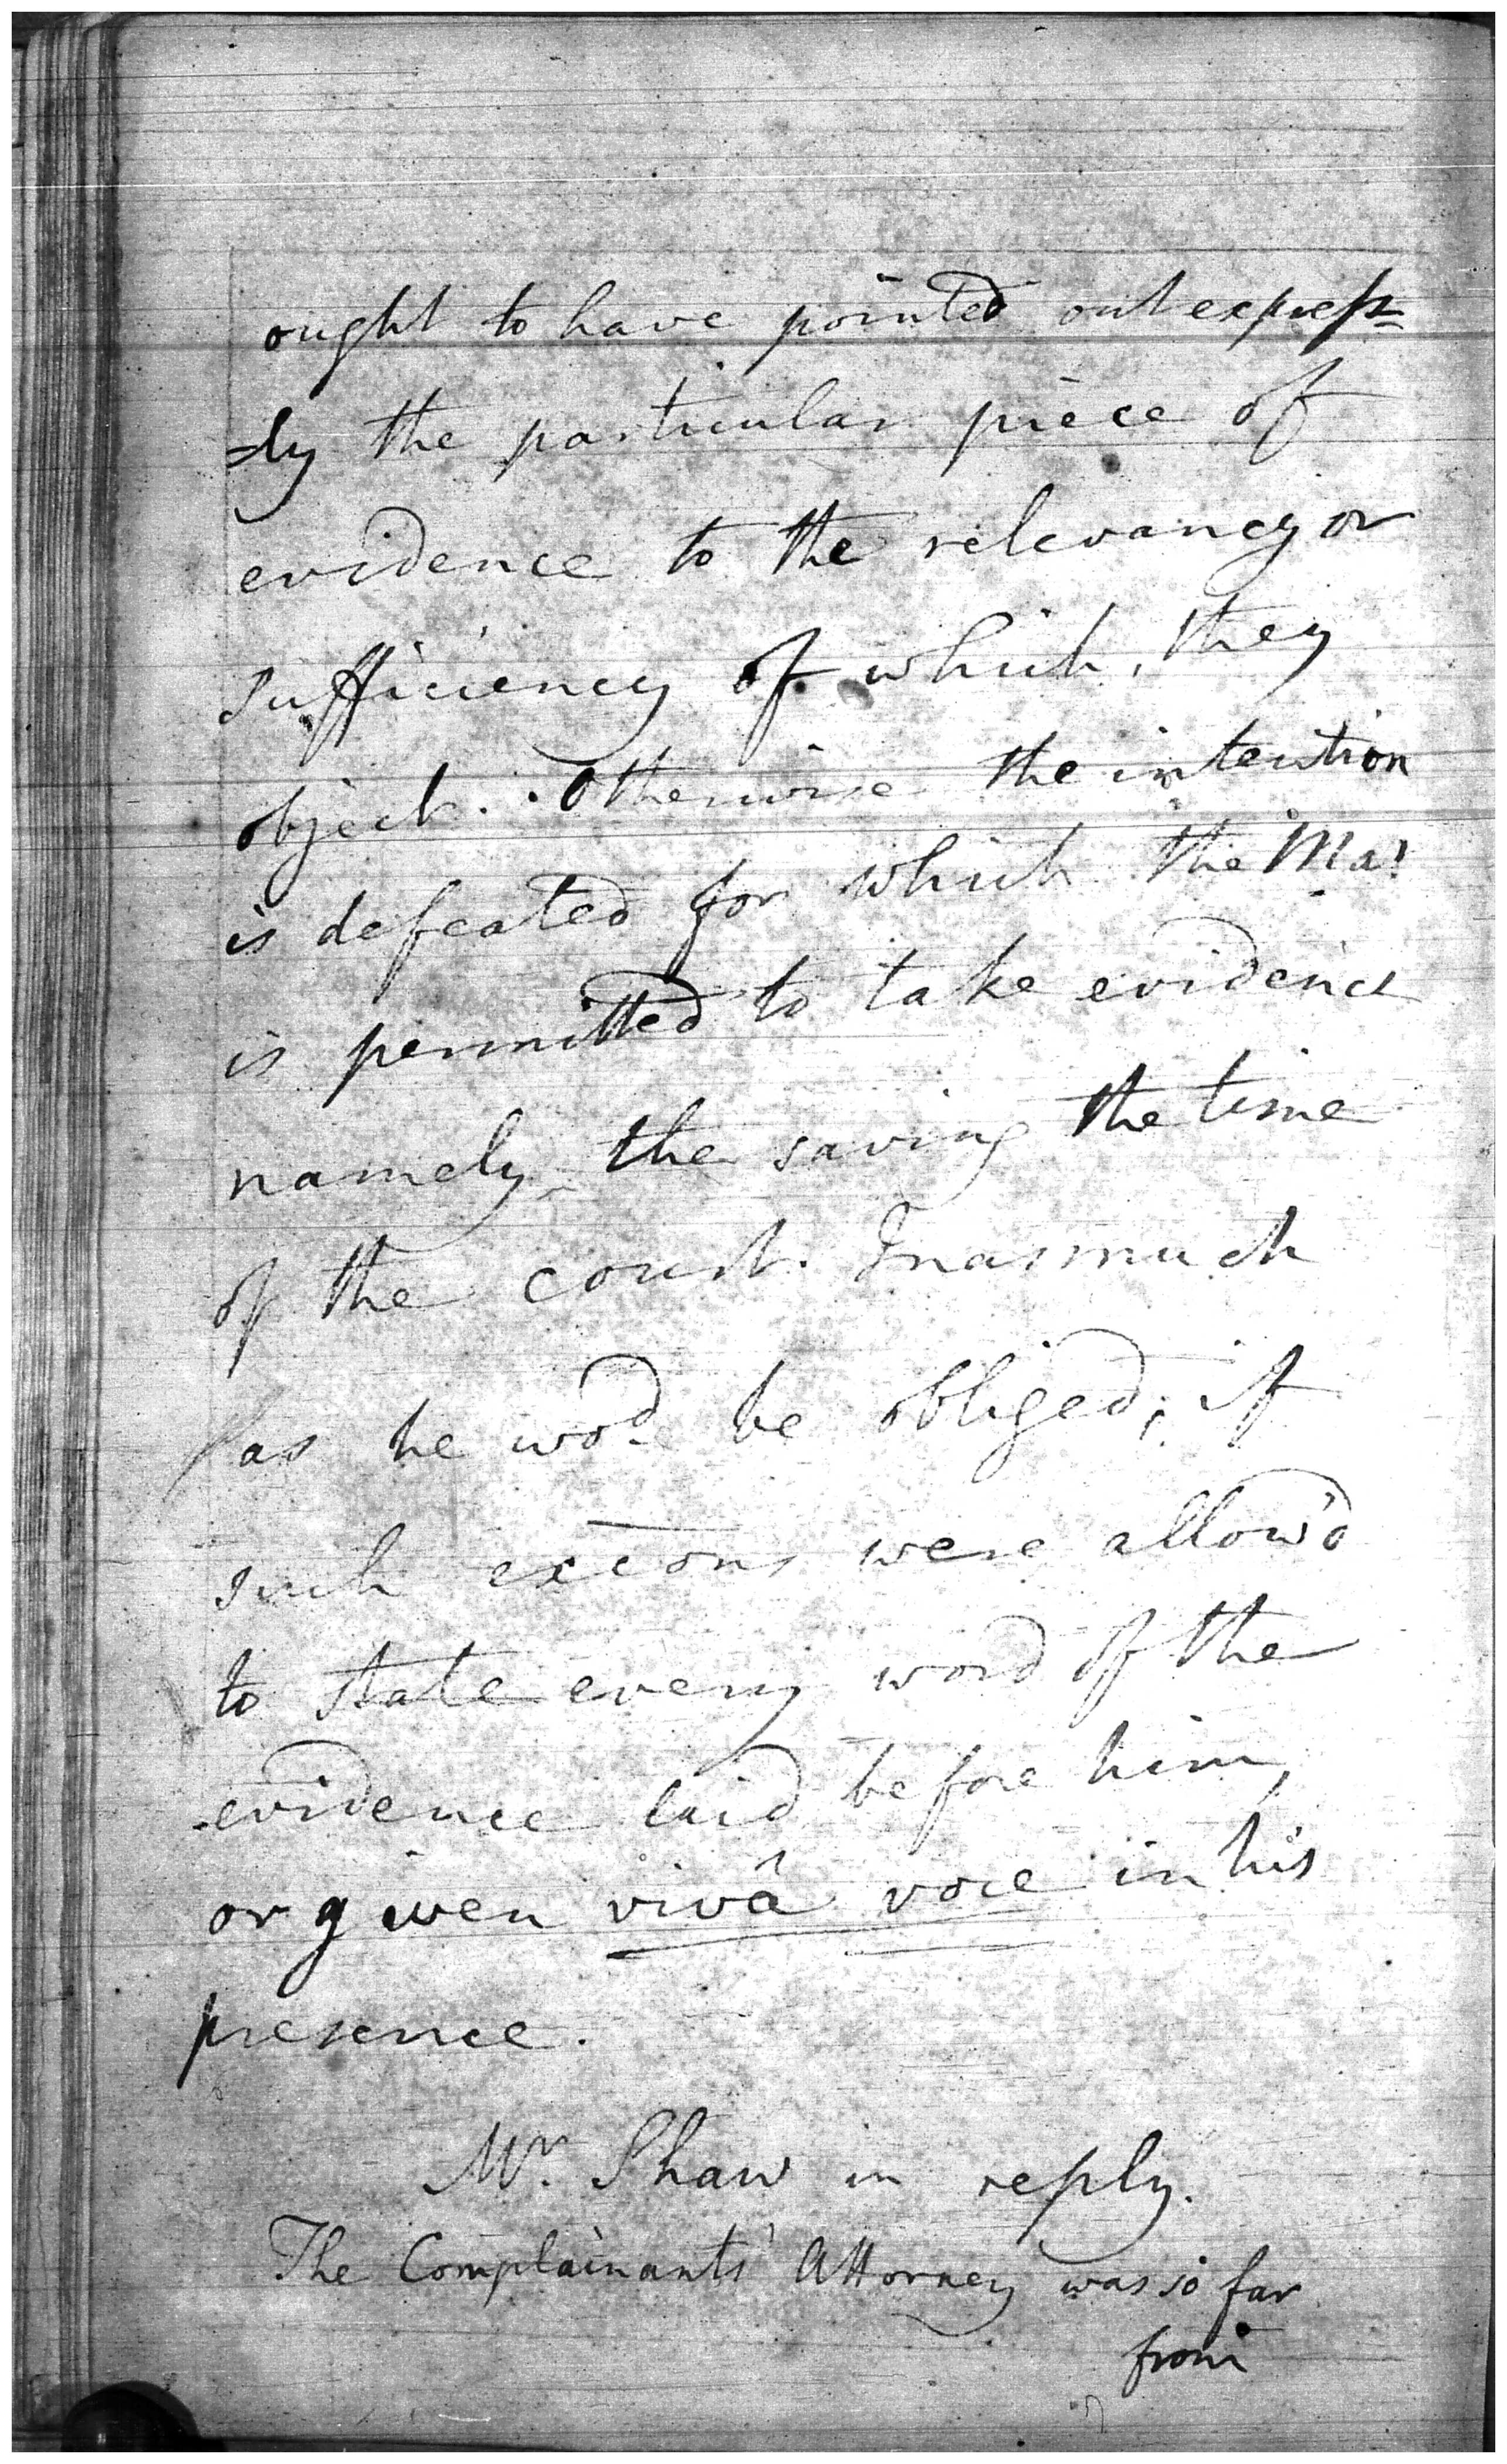 ought to have pointed out express=
=ly the particular piece of
evidence to the relevancy or
sufficiency of which, they
object. Otherwise the intention
is defeated for which the Mar
is permitted to take evidence
namely the saving the time
of the court. Inasmuch
as he wod. be obliged, if
such excons were allow'd
to state every word of the
evidence laid before him,
or given vivâ voce in his
presence.
Mr. Shaw in reply.
The Complainants' Attorney was so far
from